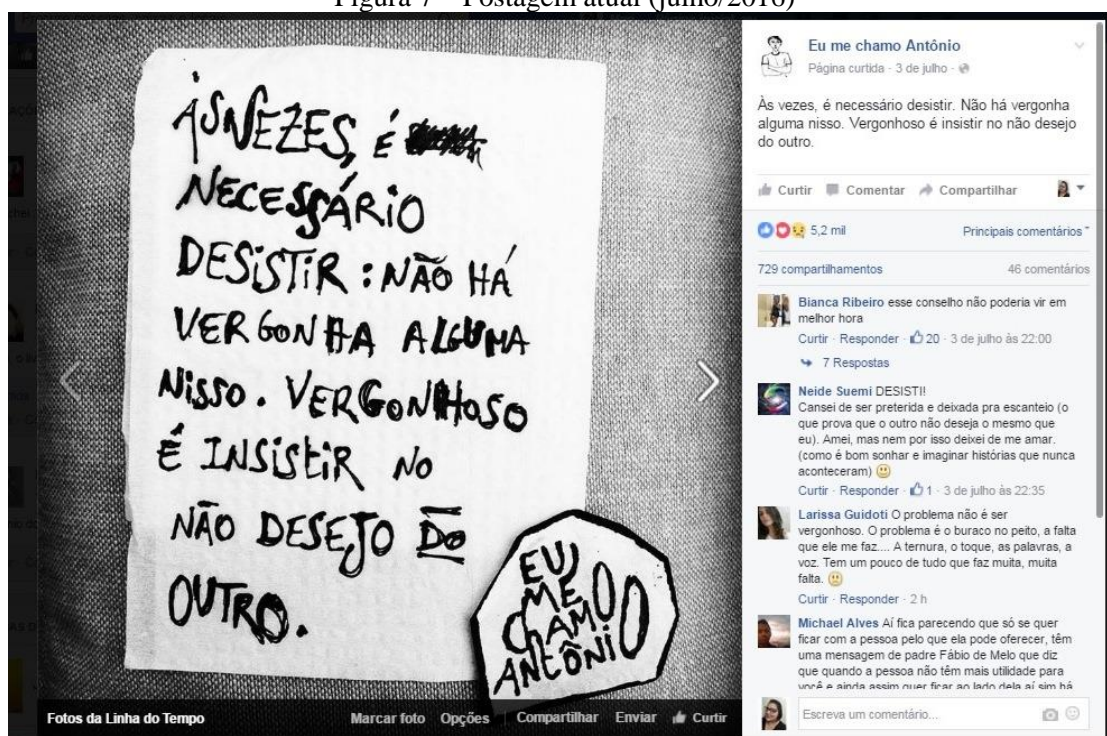 Figura 7 – Postagem atual (julho/2016)
ÀS VEZES, É
NECESSÁRIO
DESISTIR: NÃO HÁ
VERGONHA ALGUMA
NISSO. VERGONHOSO
É INSISTIR NO
NÃO DESEJO DO
OUTRO.
EU
ME
CHAMO
ANTÔNIO
Fotos da Linha do Tempo
Marcar foto Opções Compartilhar Enviar Curtir
Eu me chamo Antônio
Página curtida · 3 de julho ·
Às vezes, é necessário desistir. Não há vergonha
alguma nisso. Vergonhoso é insistir no não desejo
do outro.
Curtir Comentar Compartilhar
5,2 mil Principais comentários
729 compartilhamentos 46 comentários
Bianca Ribeiro esse conselho não poderia vir em
melhor hora
Curtir · Responder · 20 · 3 de julho às 22:00
7 Respostas
Neide Suemi DESISTI!
Cansei de ser preterida e deixada pra escanteio (o
que prova que o outro não deseja o mesmo que
eu). Amei, mas nem por isso deixei de me amar.
(como é bom sonhar e imaginar histórias que nunca
aconteceram)
Curtir · Responder · 1 · 3 de julho às 22:35
Larissa Guidoti O problema não é ser
vergonhoso. O problema é o buraco no peito, a falta
que ele me faz.... A ternura, o toque, as palavras, a
voz. Tem um pouco de tudo que faz muita, muita
falta.
Curtir · Responder · 2 h
Michael Alves Aí fica parecendo que só se quer
ficar com a pessoa pelo que ela pode oferecer, têm
uma mensagem de padre Fábio de Melo que diz
que quando a pessoa não têm mais utilidade para
você e ainda assim quer ficar ao lado dela aí sim há
Escreva um comentário...